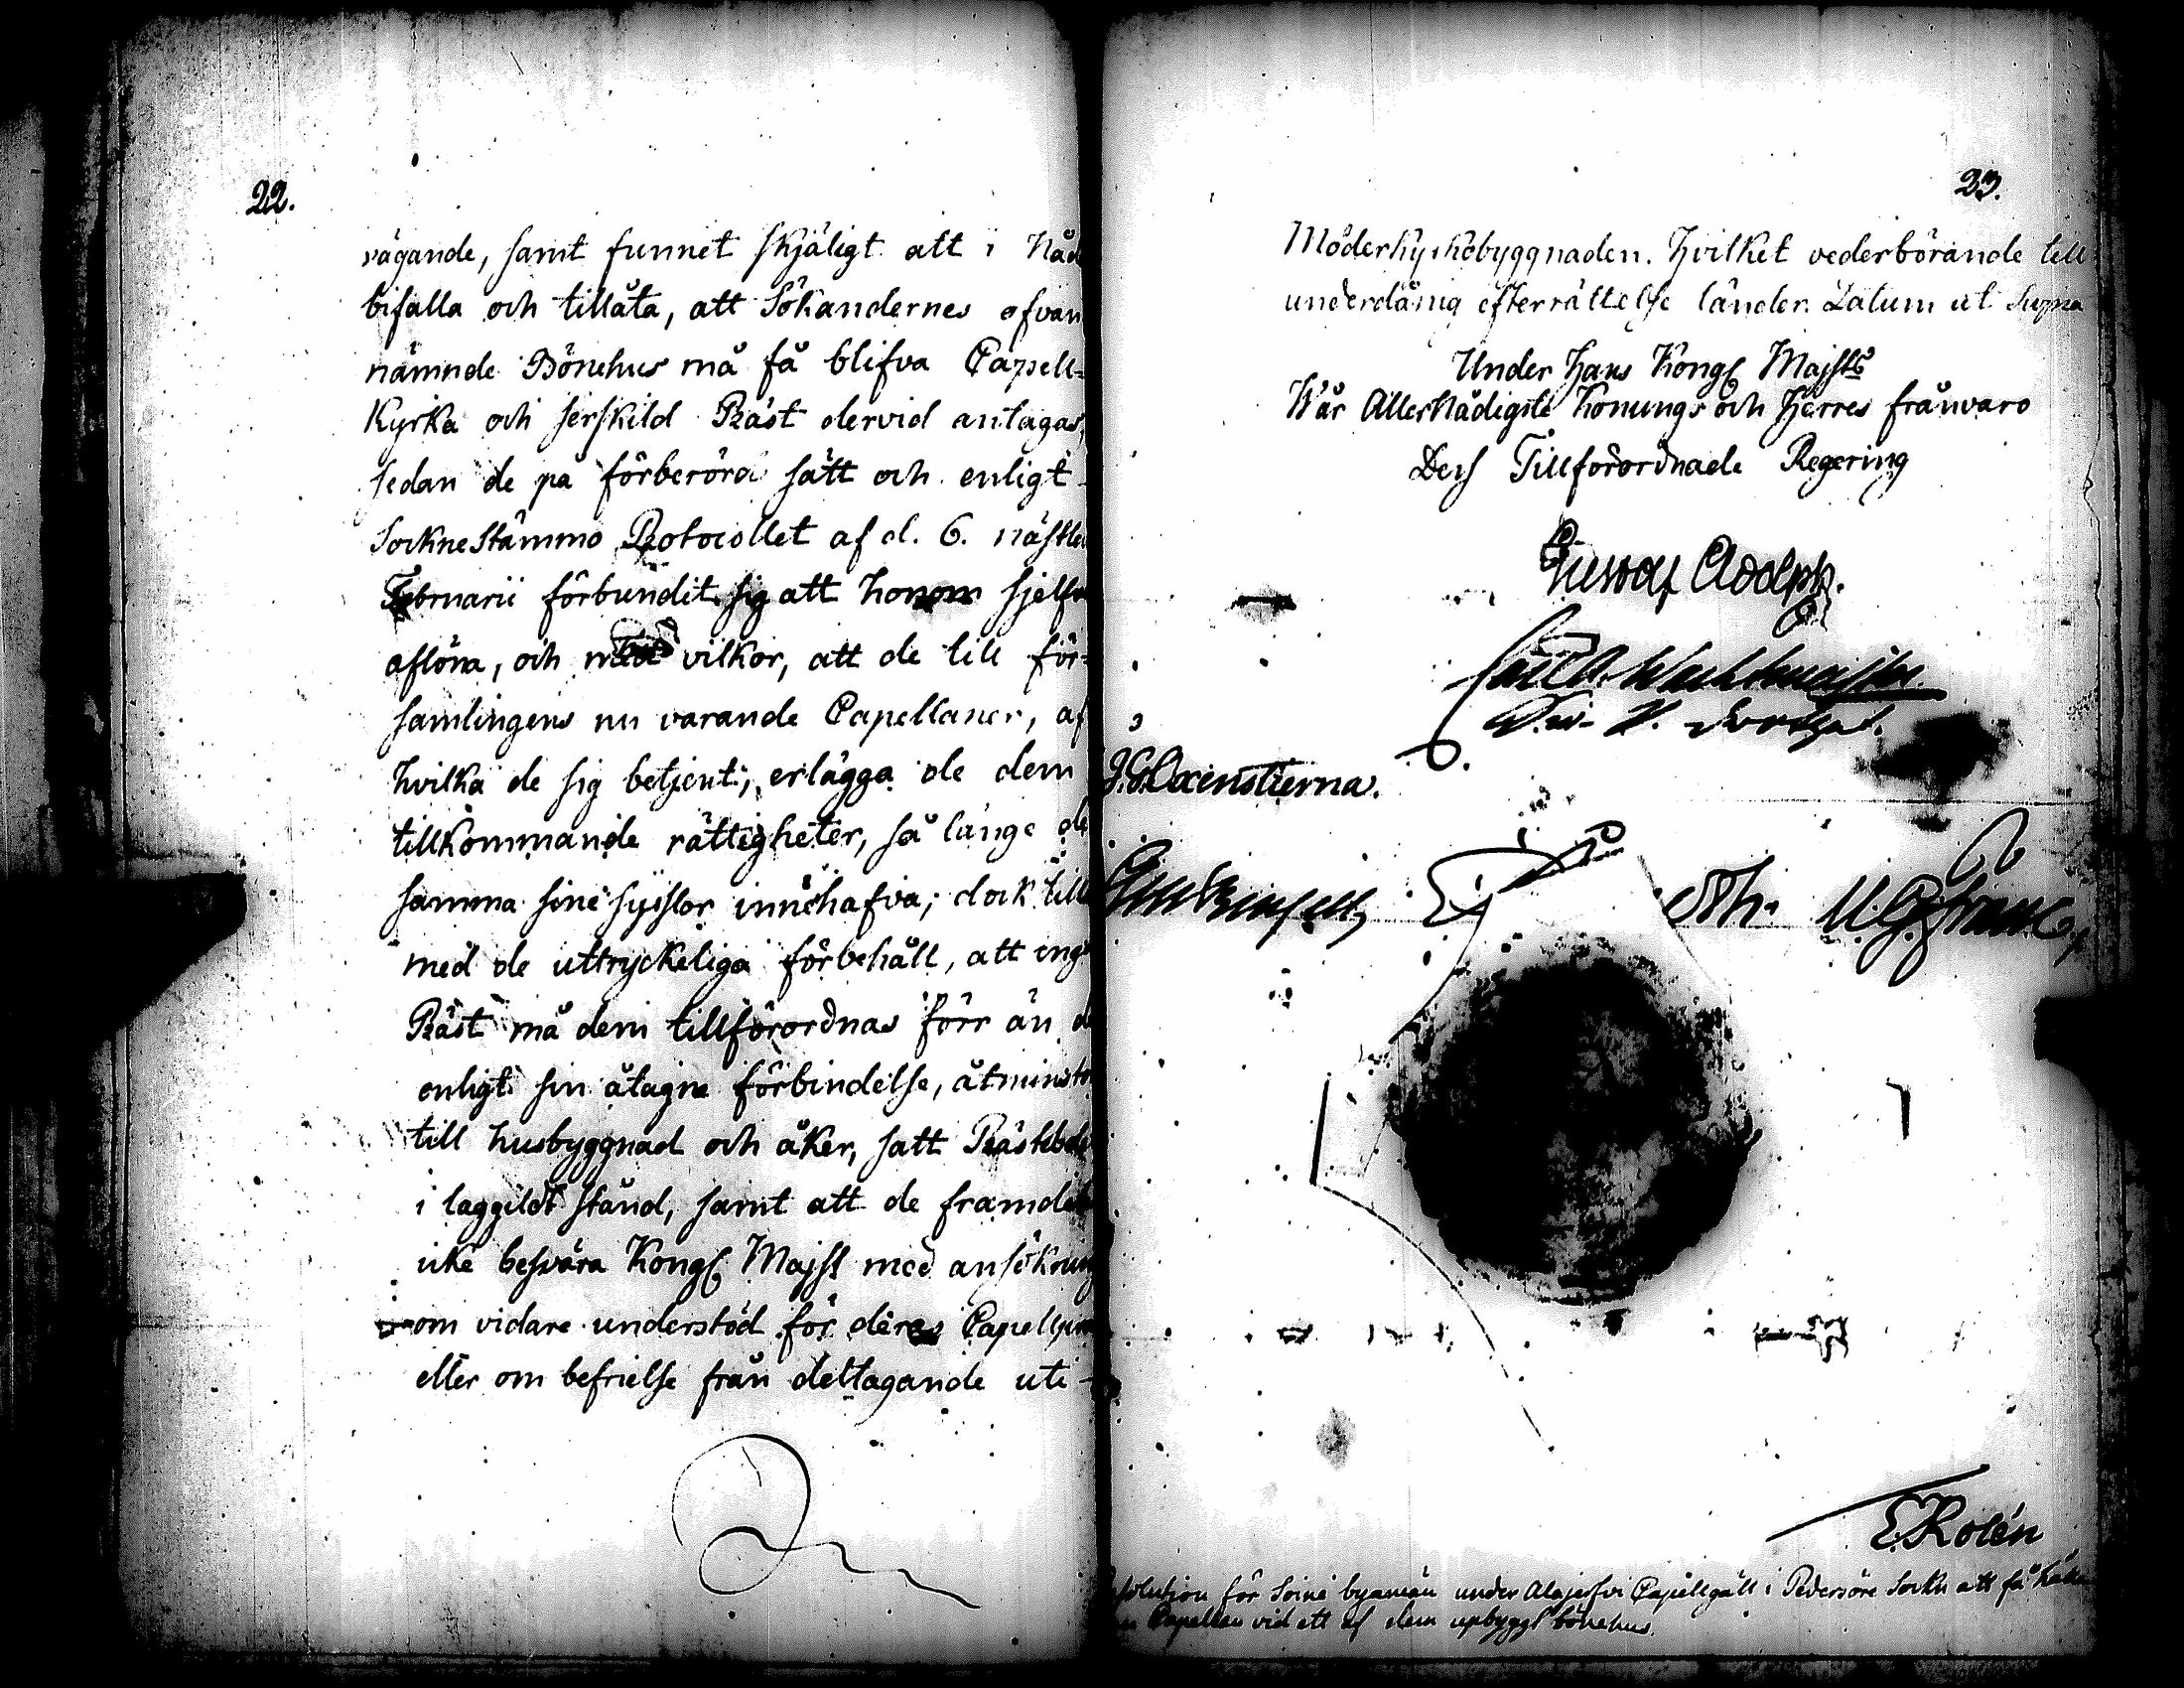 22.
vägande, samt funnet skjäligt att i Nåd
bifalla och tillåta, att Sökandernes ofvan
nämnde Bönehus må få blifva Capell-
Kyrka och serskild Präst dervid antagas,
sedan de på förberörd sätt och enligt
Sockne Stämmo Protocollet af d. 6. nästle
Februarii förbundit sig att honom sjelfva
aflöna, och med vilkor, att de till för-
samlingens nu varande Capellaner, af
hvilka de sig betjent, erlägga de dem
tillkommande rättigheter, så länge de
samma sine sysslor innehafva; dock till
med de uttryckeliga förbehåll, att ingen
Präst må dem tillförordnas förr än de
enligt sin åtagne förbindelse, åtminsto
till husbyggnad och åker, satt Präsbole
i laggildt stånd, samt att de framdeles
icke besvära Kongl Majst med ansökning
om vidare understöd för deras
eller om befrielse från deltagande uti
23.
Moderkyrkobyggnaden. Hvilket vederbörande till
underdånig efterrättelse länder. Datum ut Supra
Under Hans Kongl Majsts
Vår Allernådigste Konungs och Herres frånvaro
Dess Tillförordnade Regering
Gustaf Adolph.
Carl A. Wachtmeister
J. G. Oxenstierna.
E. Rosén
Resolution för Soine byamän under Alajerfvi Capellgäll i Pedersöre Sockn att få hålla
en Capellan vid ett af dem upbyggt bönehus.